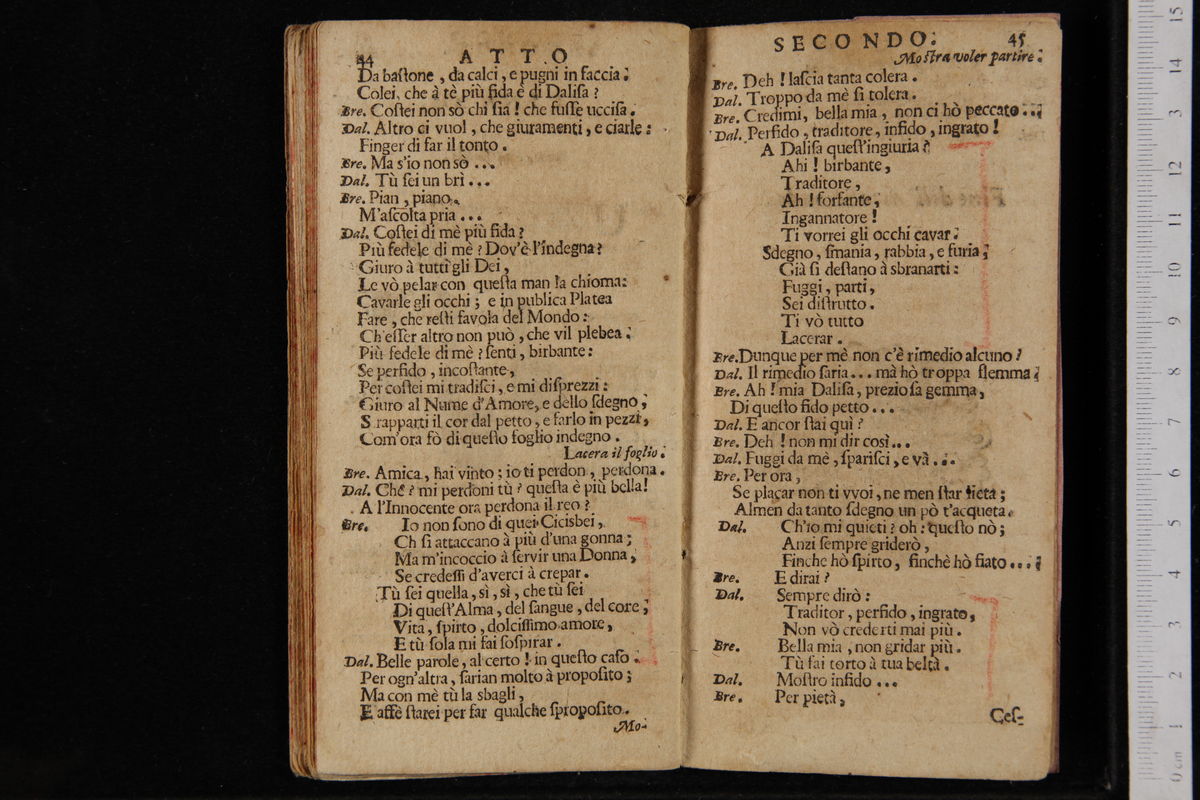 44 ATTO
Da baſtone, da calci, e pugni in faccia.
Colei, che à tè più fida è di Daliſa?
Bre. Coſtei non sò chi ſia! che fuſſe ucciſa.
Dal. Altro ci vuol, che giuramenti, e ciarle:
Finger di far il tonto.
Bre. Ma s'io non sò ...
Dal. Tù ſei un bri ...
Bre. Pian, piano.
M'aſcolta pria ...
Dal. Coſtei di mè più fida?
Più fedele di mè? Dov'è l'indegna?
Giuro à tutti gli Dei,
Le vò pelar con queſta man la chioma:
Cavarle gli occhi; e in publica Platea
Fare, che reſti favola del Mondo:
Ch'eſſer altro non può, che vil plebea.
Più fedele di mè? ſenti, birbante:
Se perfido, incoſtante,
Per coſtei mi tradiſci, e mi diſprezzi:
Giuro al Nume d'Amore, e dello ſdegno,
Strapparti il cor dal petto, e farlo in pezzi,
Com'ora fò di queſto foglio indegno.
Lacera il foglio.
Bre. Amica, hai vinto; io ti perdon, perdona.
Dal. Chè? mi perdoni tù? queſta è più bella!
A l'Innocente ora perdona il reo?
Bre. Io non ſono di quei Cicisbei,
Ch ſi attaccano à più d'una gonna;
Ma m'incoccio à ſervir una Donna,
Se credeſſi d'averci à crepar.
Tù ſei quella, sì, sì, che tù ſei
Di queſt'Alma, del ſangue, del core,
Vita, ſpirto, dolciſſimo amore,
E tù ſola mi fai ſoſpirar.
Dal. Belle parole, al certo! in queſto caſo.
Per ogn'altra, ſarian molto à propoſito;
Ma con mè tù la sbagli,
E affè ſtarei per far qualche ſpropoſito.
Mo-
SECONDO. 45
Moſtra voler partire.
Bre. Deh! laſcia tanta colera.
Dal. Troppo da mè ſi tolera.
Bre. Credimi, bella mia, non ci hò peccato ...
Dal. Perfido, traditore, infido, ingrato!
A Daliſa queſt'ingiuria?
Ahi! birbante,
Traditore,
Ah! forfante,
Ingannatore!
Ti vorrei gli occhi cavar.
Sdegno, ſmania, rabbia, e furia,
Già ſi deſtano à sbranarti:
Fuggi, parti,
Sei diſtrutto.
Ti vò tutto
Lacerar.
Bre. Dunque per mè non c'è rimedio alcuno?
Dal. Il rimedio ſaria ... mà hò troppa flemma.
Bre. Ah! mia Daliſa, prezioſa gemma,
Di queſto fido petto ...
Dal. E ancor ſtai quì?
Bre. Deh! non mi dir così ...
Dal. Fuggi da mè, ſpariſci, e và ...
Bre. Per ora,
Se placar non ti vvoi, ne men ſtar lieta;
Almen da tanto ſdegno un pò t'acqueta.
Dal. Ch'io mi quieti? oh: queſto nò;
Anzi ſempre griderò,
Finche hò ſpirto, finchè hò fiato ...
Bre. E dirai?
Dal. Sempre dirò:
Traditor, perfido, ingrato,
Non vò crederti mai più.
Bre. Bella mia, non gridar più.
Tù fai torto à tua beltà.
Dal. Moſtro infido ...
Bre. Per pietà,
Ceſ-